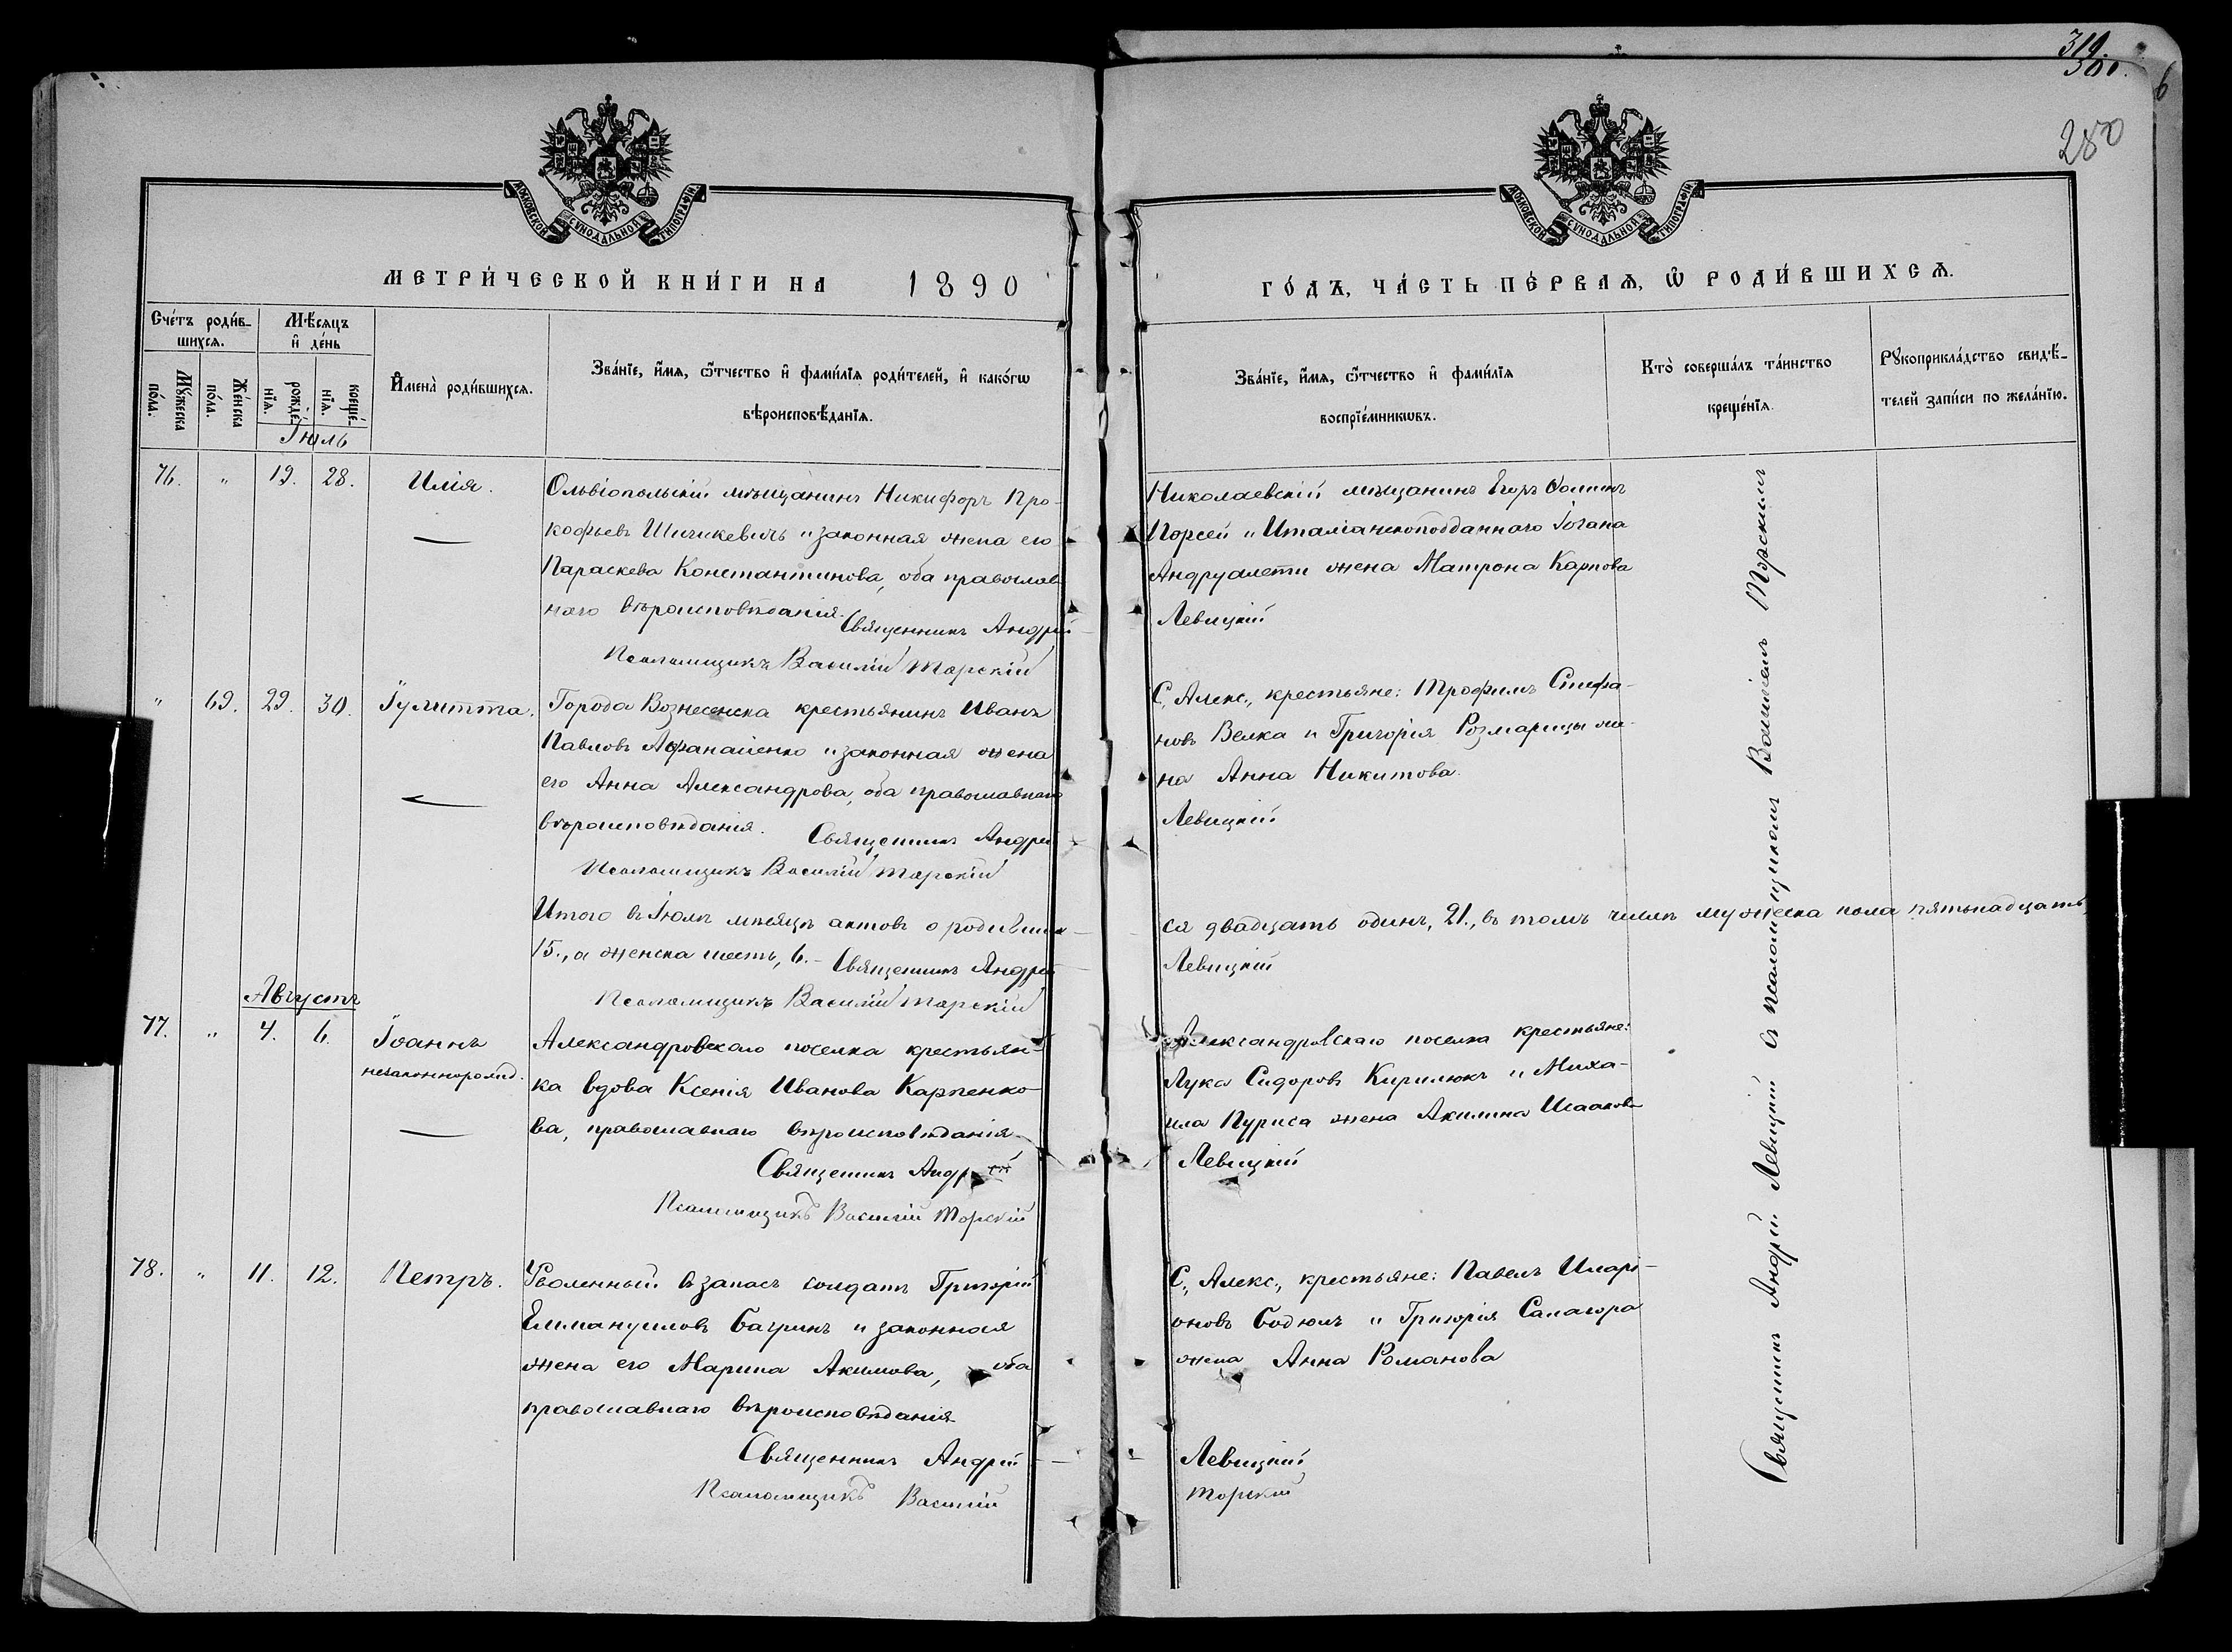 319.
301.
6
280
МОСКОВСКОЙ СѴНОДАЛЬНОЙ ТИПОГРАФІИ
МОСКОВСКОЙ СѴНОДАЛЬНОЙ ТИПОГРАФІИ
МЕТРИ́ЧЕСКОЙ КНИ́ГИ НА 1890
ГО́ДЪ, ЧА́СТЬ ПЕ́РВАѦ, Ѡ҆ РОДИ́ВШИХСѦ.
Сче́тъ роди́в-
шихсѧ.
Мѣ́сѧцъ
и҆ де́нь
Мꙋ́жеска
по́ла.
Же́нска
по́ла.
рожде́-
нїѧ.
креще́-
нїѧ.
И҆мена̀ роди́вшихсѧ.
Зва́нїе, и҆́мѧ, ѻ҆́тчество и҆ фами́лїѧ роди́телей, и҆ како́гѡ
вѣроисповѣ́данїѧ.
Зва́нїе, и҆́мѧ, ѻ҆́тчество и҆ фами́лїѧ
воспрїе́мникѡвъ.
Кто̀ соверша́лъ та́инство
креще́нїѧ.
Рꙋкоприкла́дство свидѣ́-
телей за́писи по жела́нїю.
Іюль
76. " 19. 28. Илія.
Ольвіопольскій мѣщанинъ Никифоръ Про-
кофьевъ Шичкевичъ и законная жена его
Параскева Константинова, оба православ
наго вѣроисповѣданія.
Священникъ Андрей
Псаломщикъ Василій Торскій
Николаевскій мѣщанинъ Егоръ Ѳоминъ
Порсей и Италіанскоподданнаго Іогана
Андруалети жена Матрона Карпова
Левицкій
" 69. 29. 30. Іулитта.
Города Вознесенска крестьянинъ Иванъ
Павловъ Афанасіенко и законная жена
его Анна Александрова, оба православнаго
вѣроисповѣданія.
Священникъ Андрей
Псаломщикъ Василій Торскій
С. Алекс., крестьяне: Трофимъ Стефа-
новъ Велка и Григорія Розмарицы же-
на Анна Никитова.
Левицкій
Итого въ Іюлѣ мѣсяцѣ актовъ о родивших
ся двадцать одинъ, 21., въ томъ числѣ мужеска пола пятьнадцать,
15., а женска шесть, 6.-
Священникъ Андрей
Левицкій
Псаломщикъ Василій Торскій
Августъ
77. " 4. 6. Іоаннъ
незаконнорожд.
Александровскаго поселка крестьян-
ка вдова Ксенія Иванова Карпенко-
ва, православнаго вѣроисповѣданія.
Священникъ Андрей
Псаломщикъ Василій Торскій
Александровскаго поселка крестьяне:
Лука Сидоровъ Кирилюкъ и Миха-
ила Пуриса жена Акилина Исаакова
Левицкій
78. " 11. 12. Петръ.
Уволенный въ запасъ солдатъ Григорій
Еммануиловъ Багринъ и законная
жена его Марина Акимова, оба
православнаго вѣроисповѣданія
Священникъ Андрей
Псаломщикъ Василій
С. Алекс., крестьяне: Павелъ Иларі-
оновъ Бодюлъ и Григорія Самагора
жена Анна Романова
Левицкій
Торскій
Священникъ Андрей Левицкій съ псаломщикомъ Василіемъ Торскимъ